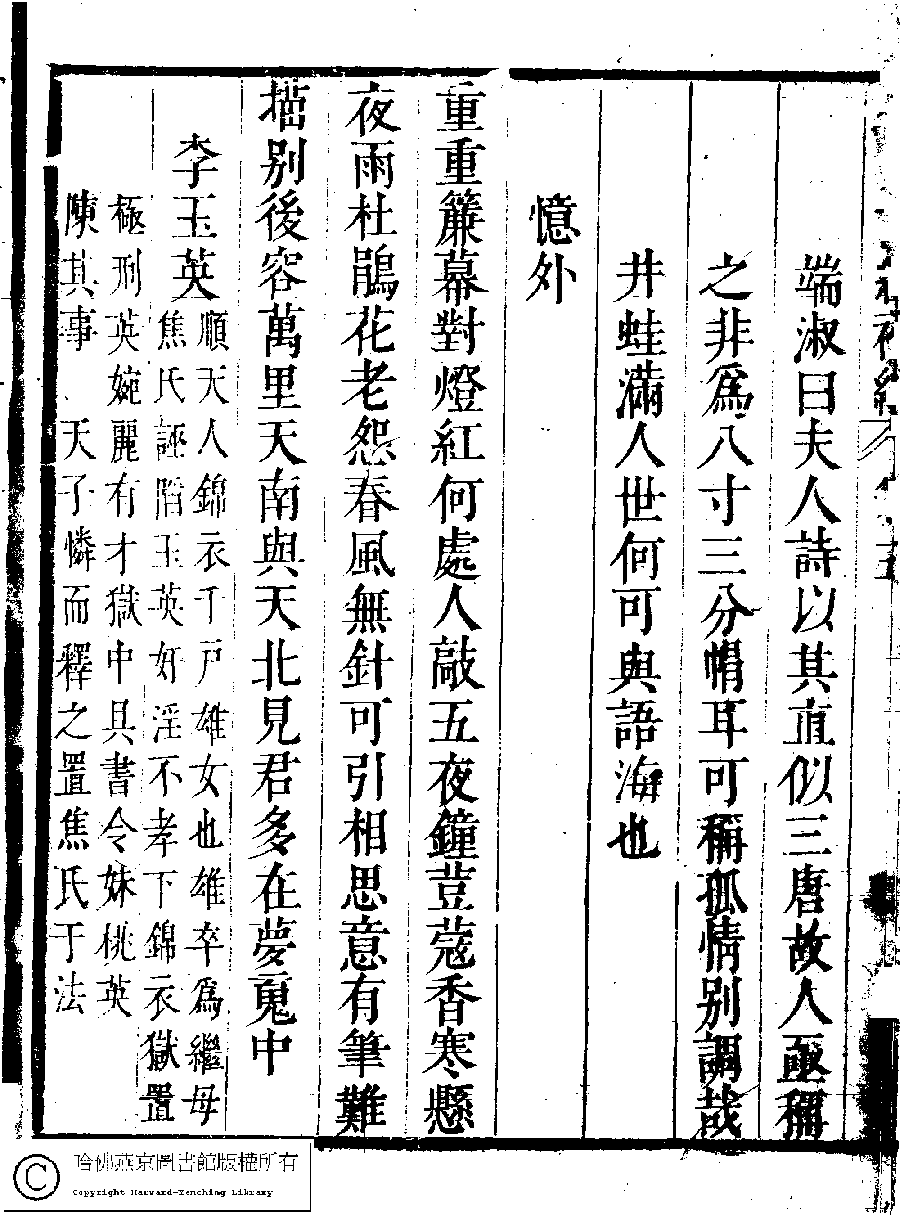 端淑曰夫人詩以其直似三唐故人亟稱
之非爲八寸三分帽耳可稱孤情別調哉
井蛙滿人世何可與語海也
憶外
重重簾幕對燈紅何處人敲五夜鐘荳蔻香寒懸
夜雨杜鵑花老怨春風無針可引相思意有筆難
描別後容萬里天南與天北見君多在夢䰟中
李玉英
順天人錦衣千戸雄女也雄卒爲繼母
焦氏誣陷玉英奸淫不孝下錦衣獄置
極刑英婉麗有才獄中具書令妹桃英
陳其事 天子憐而釋之置焦氏于法
哈佛燕京圖書館版權所有
Copyright Harvard-Yenching Library